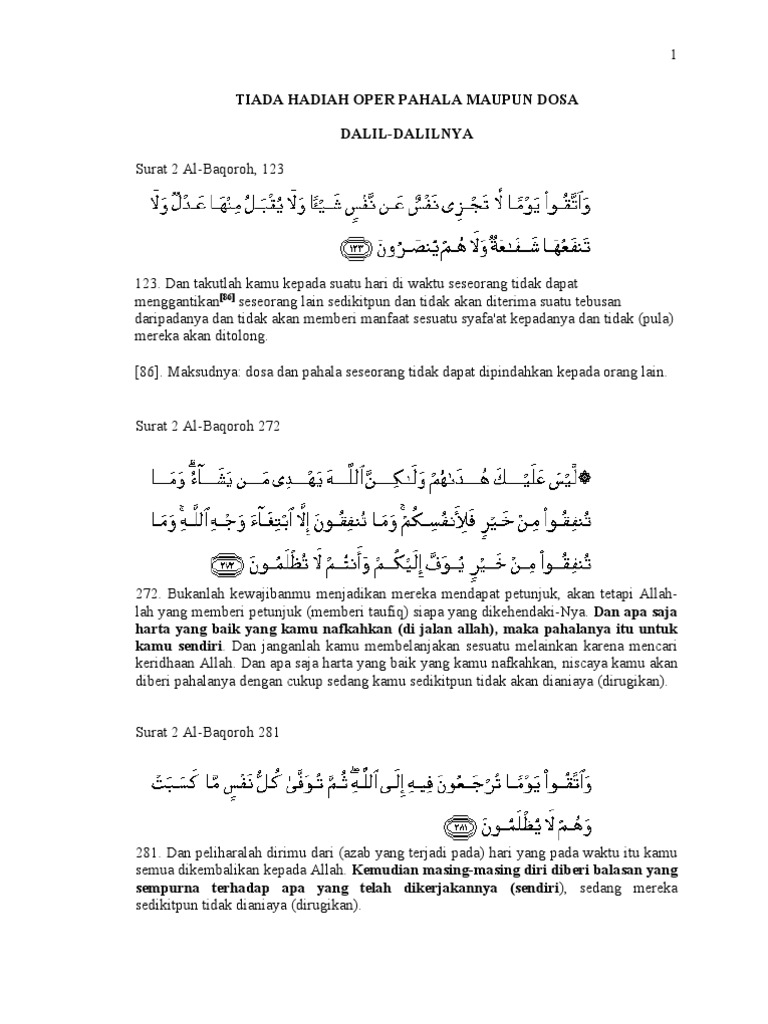 1
TIADA HADIAH OPER PAHALA MAUPUN DOSA
DALIL-DALILNYA
Surat 2 Al-Baqoroh, 123
وَٱتَّقُوا۟ يَوْمًا لَّا تَجْزِى نَفْسٌ عَن نَّفْسٍ شَيْـًٔا وَلَا يُقْبَلُ مِنْهَا عَدْلٌ وَلَا
تَنفَعُهَا شَفَـٰعَةٌ وَلَا هُمْ يُنصَرُونَ ﴿١٢٣﴾
123. Dan takutlah kamu kepada suatu hari di waktu seseorang tidak dapat
menggantikan[86] seseorang lain sedikitpun dan tidak akan diterima suatu tebusan
daripadanya dan tidak akan memberi manfaat sesuatu syafa'at kepadanya dan tidak (pula)
mereka akan ditolong.
[86]. Maksudnya: dosa dan pahala seseorang tidak dapat dipindahkan kepada orang lain.
Surat 2 Al-Baqoroh 272
۞ لَّيْسَ عَلَيْكَ هُدَىٰهُمْ وَلَـٰكِنَّ ٱللَّهَ يَهْدِى مَن يَشَآءُ ۗ وَمَا
تُنفِقُوا۟ مِنْ خَيْرٍ فَلِأَنفُسِكُمْ ۚ وَمَا تُنفِقُونَ إِلَّا ٱبْتِغَآءَ وَجْهِ ٱللَّهِ ۚ وَمَا
تُنفِقُوا۟ مِنْ خَيْرٍ يُوَفَّ إِلَيْكُمْ وَأَنتُمْ لَا تُظْلَمُونَ ﴿٢٧٢﴾
272. Bukanlah kewajibanmu menjadikan mereka mendapat petunjuk, akan tetapi Allah-
lah yang memberi petunjuk (memberi taufiq) siapa yang dikehendaki-Nya. Dan apa saja
harta yang baik yang kamu nafkahkan (di jalan allah), maka pahalanya itu untuk
kamu sendiri. Dan janganlah kamu membelanjakan sesuatu melainkan karena mencari
keridhaan Allah. Dan apa saja harta yang baik yang kamu nafkahkan, niscaya kamu akan
diberi pahalanya dengan cukup sedang kamu sedikitpun tidak akan dianiaya (dirugikan).
Surat 2 Al-Baqoroh 281
وَٱتَّقُوا۟ يَوْمًا تُرْجَعُونَ فِيهِ إِلَى ٱللَّهِ ۖ ثُمَّ تُوَفَّىٰ كُلُّ نَفْسٍ مَّا كَسَبَتْ
وَهُمْ لَا يُظْلَمُونَ ﴿٢٨١﴾
281. Dan peliharalah dirimu dari (azab yang terjadi pada) hari yang pada waktu itu kamu
semua dikembalikan kepada Allah. Kemudian masing-masing diri diberi balasan yang
sempurna terhadap apa yang telah dikerjakannya (sendiri), sedang mereka
sedikitpun tidak dianiaya (dirugikan).